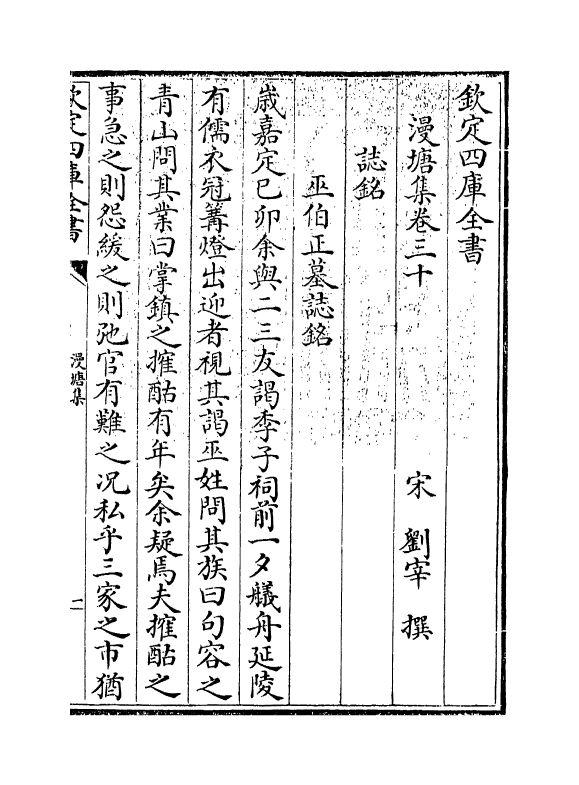 欽定四庫全書
漫塘集卷三十
宋 劉宰 撰
誌銘
巫伯正墓誌銘
歲嘉定己卯余與二三友謁季子祠前一夕艤舟延陵
有儒衣冠篝燈出迎者視其謁巫姓問其族曰句容之
青山問其業曰掌鎮之搉酤有年矣余疑焉夫搉酤之
事急之則怨緩之則弛官有難之况私乎三家之市猶
欽定四庫全書
漫塘集